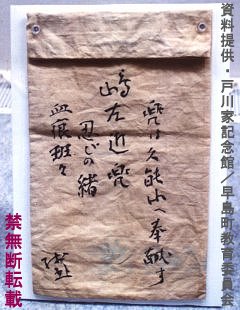 資料提供・戸川家記念館／早島町教育委員会
兜は久能山へ奉献す
嶋左近兜
忍びの緒
血痕斑々
禁無断転載